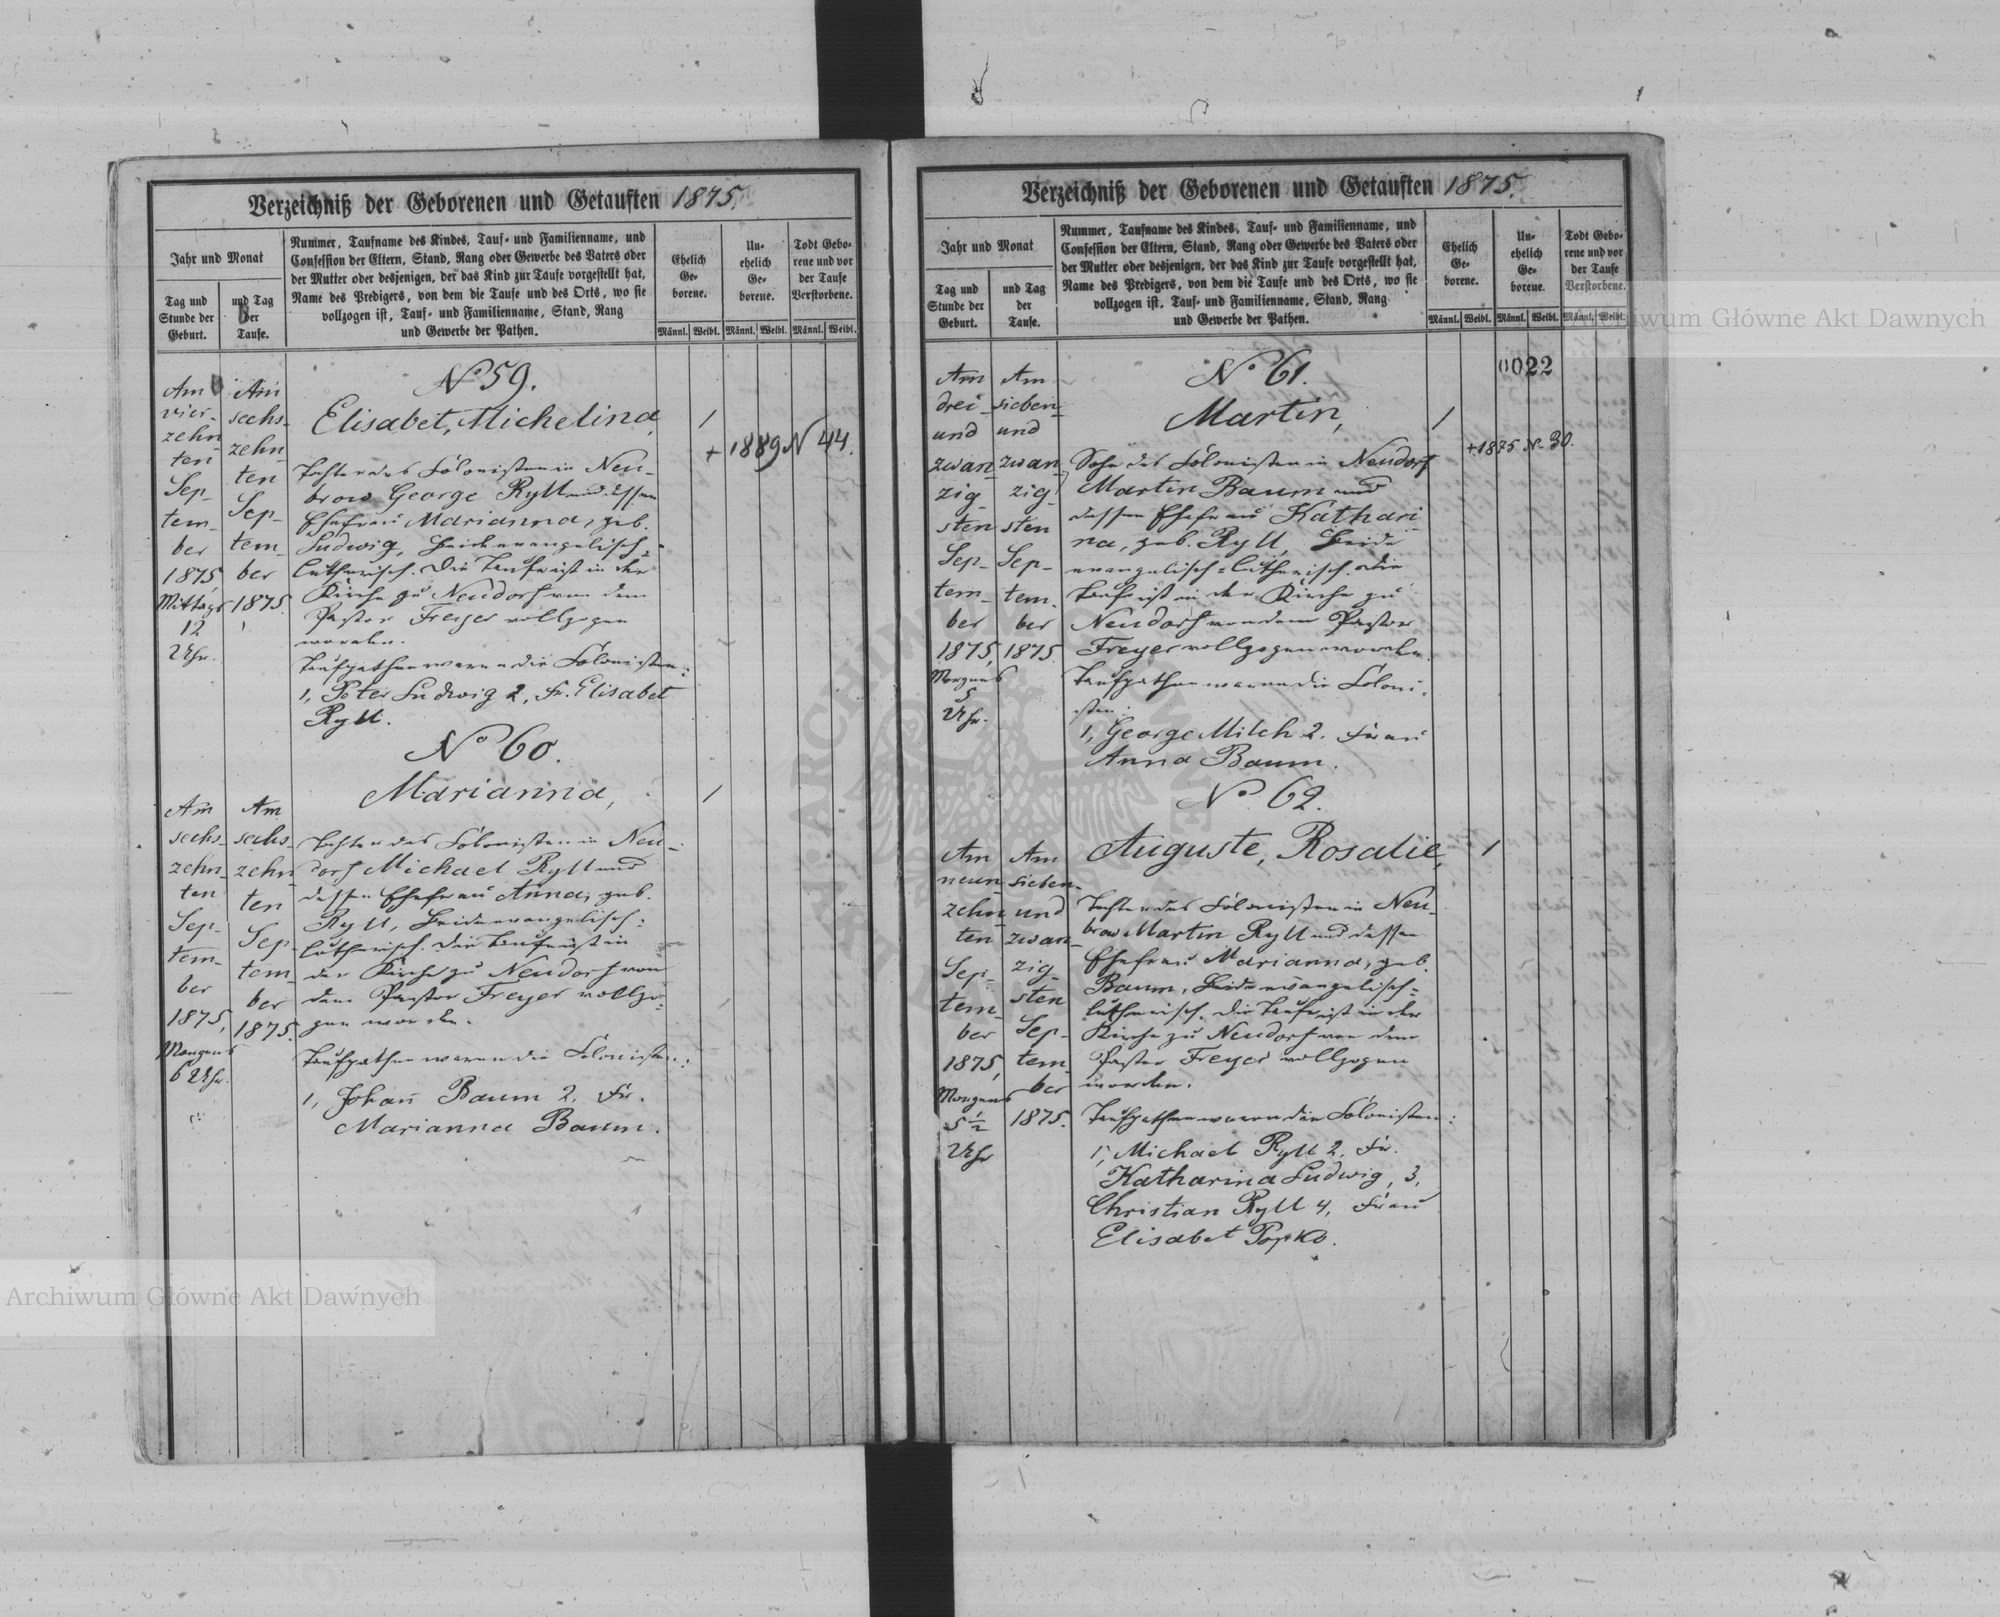 Verzeichniß der Geborenen und Getauften 1875.
Jahr und Monat
Tag und Stunde der Geburt.
und Tag der Taufe.
Nummer, Taufname des Kindes, Tauf- und Familienname, und
Confession der Eltern, Stand, Rang oder Gewerbe des Vaters oder
der Mutter oder desjenigen, der das Kind zur Taufe vorgestellt hat,
Name des Predigers, von dem die Taufe und des Orts, wo sie
vollzogen ist, Tauf- und Familienname, Stand, Rang
und Gewerbe der Pathen.
Ehelich Ge- borene.
Un- ehelich Ge- borene.
Todt Gebo- rene und vor der Taufe Verstorbene.
Männl. Weibl. Männl. Weibl. Männl. Weibl.
Am
vier-
zehn
ten
Sep-
tem-
ber
1875,
Mittags
12
Uhr.
Am
sechs-
zehn-
ten
Sep-
tem-
ber
1875.
No 59.
Elisabet, Michelina,
1
+ 1889 N 44.
Tochter des Colonisten in Neu-
brow George Ryll und dessen
Ehefrau Marianna, geb.
Ludwig, Beide evangelisch-
lutherisch. Die Taufe ist in der
Kirche zu Neudorf von dem
Pastor Freyer vollzogen
worden.
Taufpathen waren die Colonisten:
1, Peter Ludwig 2, Fr. Elisabet
Ryll.
Am
sechs-
zehn-
ten
Sep-
tem-
ber
1875,
Morgens
6 Uhr.
Am
sechs-
zehn
ten
Sep-
tem
ber
1875.
No 60.
Marianna,
1
Tochter des Colonisten in Neu-
dorf Michael Ryll und
dessen Ehefrau Anna, geb.
Ryll, Beide evangelisch-
lutherisch. Die Taufe ist in
der Kirche zu Neudorf von
dem Pastor Freyer vollzo-
gen worden.
Taufpathen waren die Colonisten:
1, Johan̄ Baum 2, Fr.
Marianna Baum.
Verzeichniß der Geborenen und Getauften 1875.
Jahr und Monat
Tag und Stunde der Geburt.
und Tag der Taufe.
Nummer, Taufname des Kindes, Tauf- und Familienname, und
Confession der Eltern, Stand, Rang oder Gewerbe des Vaters oder
der Mutter oder desjenigen, der das Kind zur Taufe vorgestellt hat,
Name des Predigers, von dem die Taufe und des Orts, wo sie
vollzogen ist, Tauf- und Familienname, Stand, Rang
und Gewerbe der Pathen.
Ehelich Ge- borene.
Un- ehelich Ge- borene.
Todt Gebo- rene und vor der Taufe Verstorbene.
Männl. Weibl. Männl. Weibl. Männl. Weibl.
0022
Am
drei-
und
zwan-
zig-
sten
Sep-
tem-
ber
1875,
Morgens
5
Uhr.
Am
sieben-
und
zwan-
zig-
sten
Sep-
tem-
ber
1875
No 61.
Martin,
1
+1875 N. 30.
Sohn des Colonisten in Neudorf
Martin Baum und
dessen Ehefrau Kathari
na, geb. Ryll, Beide
evangelisch-lutherisch. Die
Taufe ist in der Kirche zu
Neudorf von dem Pastor
Freyer vollzogen worden.
Taufpathen waren die Coloni-
sten:
1, George Milch 2. Frau
Anna Baum.
Am
neun-
zehn
ten
Sep-
tem-
ber
1875,
Morgens
5 1/2
Uhr
Am
sieben-
und
zwan-
zig-
sten
Sep-
tem-
ber
1875.
No 62.
Auguste, Rosalie,
1
Tochter des Colonisten in Neu-
brow Martin Ryll und dessen
Ehefrau Marianna, geb.
Baum, Beide evangelisch-
lutherisch. Die Taufe ist in der
Kirche zu Neudorf von dem
Pastor Freyer vollzogen
worden.
Taufpathen waren die Colonisten:
1, Michael Ryll 2, Fr.
Katharina Ludwig, 3,
Christian Ryll 4, Frau
Elisabet Popko.
Archiwum Główne Akt Dawnych
Archiwum Główne Akt Dawnych